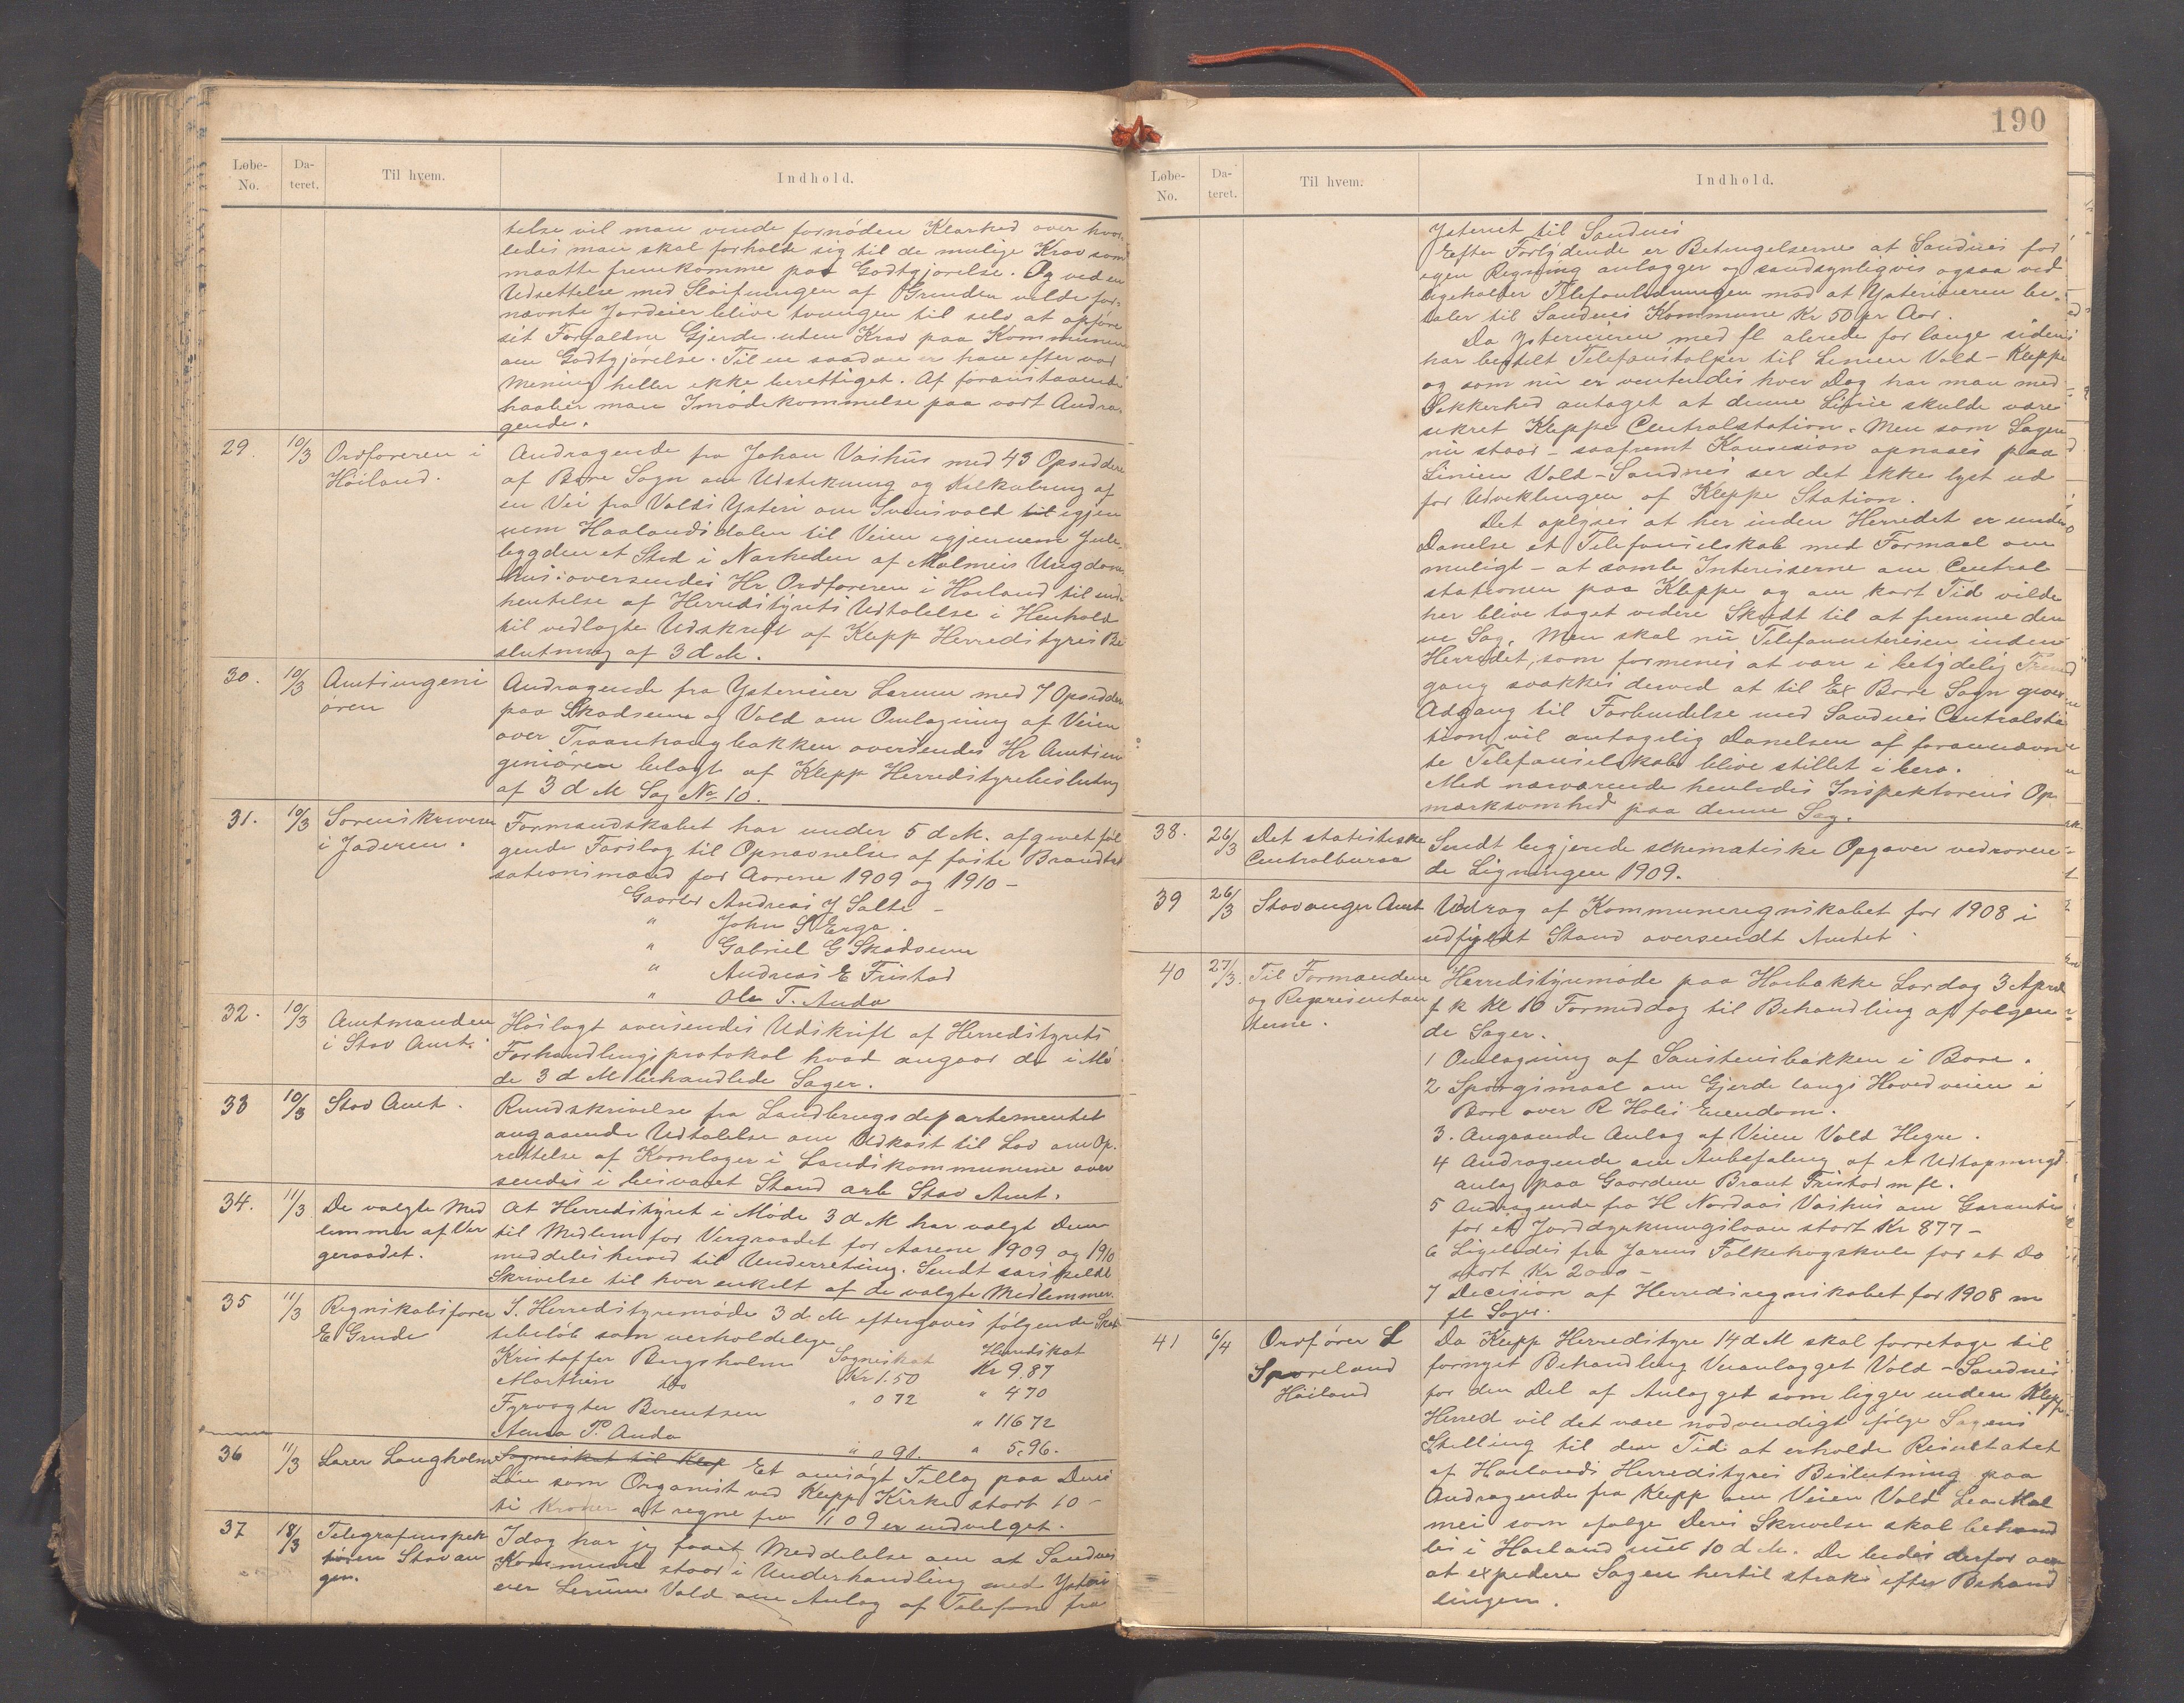 190
Løbe-
No.
Da-
teret.
Til hvem.
Indhold.
telse vil man vinde fornøden Klarhed over hvor-
ledes man skal forholde sig til de mulige Krav som
maatte fremkomme paa Godtgjørelse. Og ved en
Udsettelse med Sløifningen af Grinden vilde for-
nævnte Jordeier blive tvungen til selv at opføre
sit Forfaldne Gjerde uden Krav paa Kommunen
om Godtgjørelse. Til en saadan er han efter vor
Mening heller ikke berettiget. Af foranstaaende
haaber man Imødekommelse paa vort Andra-
gende.
29. 10/3 Ordføreren i
Høiland.
Andragende fra Johan Vashus med 43 Opsiddere
af Bore Sogn om Udstikning og Kalkulering af
en Vei fra Volds Ysteri om Svensvold til igjen
nem Haalandsdalen til Veien igjennem Jule-
bygden et Sted i Nærheden af Malmeis Ungdoms
hus: oversendes Hr. Ordføreren i Høiland til ind
hentelse af Herredstyrets Udtalelse i Henhold
til vedlagte Udskrift af Klepp Herredstyres Be
slutning af 3 d M.
30. 10/3 Amtsingeni
øren
Andragende fra Ysterieier Lerum med 7 Opsiddere
paa Skadsem og Vold om Omlægning af Veien
over Traanhaugbakken oversendes Hr Amtsin
geniøren belagt af Klepp Herredstyrebeslutning
af 3 d M Sag No 10.
31. 10/3 Sorenskriveren
i Jæderen.
Formandskabet har under 5 d M. afgivet føl
gende Forslag til Opnævnelse af faste Brandtak
sationsmænd for Aarene 1909 og 1910 —
Gaardbr Andreas J Salte —
" John S Erga.
" Gabriel G Skadsem
" Andreas E Friestad
" Ole T. Anda
32. 10/3 Amtmanden
i Stav Amt.
Høilagt oversendes Udskrift af Herredstyrets
Forhandlingsprotokol hvad angaar de i Mø
de 3 d M behandlede Sager.
33 10/3 Stav Amt.
Rundskrivelse fra Landbrugsdepartementet
angaaende Udtalelse om Udkast til Lov om Op-
rettelse af Kornlager i Landskommunerne over
sendes i besvaret Stand arb Stav Amt.
34. 11/3 De valgte Med
lemmer af Ver
geraadet.
At Herredstyret i Møde 3 d M har valgt Dem
til Medlem for Vergeraadet for Aarene 1909 og 1910
meddeles herved til Underretning. Sendt særskildt
Skrivelse til hver enkelt af de valgte Medlemmer.
35 11/3 Regnskabsfører
E Grude
I. Herredstyremøde 3 d M eftergaves følgende Skat
tebeløb som uerholdelige
Sogneskat Herredskat
Kristoffer Bergsholm Kr 1.50 Kr 9.87
Marthin do " 0 72 " 4 70
Fyrvogter Berentsen " 116 72
Anna P. Anda " 0 91. " 5.96.
36 11/3 Lærer Langholm
Sogneskat til Klep Et ansøgt Tillæg paa Deres
Løn som Organist ved Klepp Kirke stort 10 —
ti Kroner at regne fra 1/1 09 er indvilget.
37 18/3 Telegrafinspek
tøren Stavan
ger.
Idag har jeg faaet Meddelelse om at Sandnes
Kommune staar i Underhandling med Ysteri
eier Lerum Vold om Anlæg af Telefon fra
Løbe-
No.
Da-
teret.
Til hvem.
Indhold.
Ysteriet til Sandnes
Efter Forlydende er Betingelserne at Sandnes for
egen Regning anlægger og sandsynligvis ogsaa ved
ligeholder Telefonledningen mod at Ysterieieren be-
taler til Sandnes Kommune Kr 50 pr Aar.
Da Ysterieieren med fl alerede for lange siden
har bestilt Telefonstolper til Linien Vold – Kleppe
og som nu er ventendes hver Dag har man med
Sekkerhed antaget at denne Linie skulde være
sikret Kleppe Centralstation. Men som Sagen
nu staar – saafremt Konsesion opnaaes paa
Linien Vold – Sandnes ser det ikke lyst ud
for Udviklingen af Kleppe Station.
Det oplyses at her inden Herredet er under
Danelse et Telefonselskab med Formaal om
muligt – at samle Interisserne om Central
stationen paa Kleppe og om kort Tid vilde
her blive taget videre Skridt til at fremme den
ne Sag. Men skal nu Telefoninteresen inden
Herredet, som formenes at være i betydelig Frem
gang svækkes derved at til Ex Bore Sogn gives
Adgang til Forbindelse med Sandnes Centralsta
tion vil antagelig Danelsen af forannævn
te Telefonselskab blive stillet i bero.
Med nærværende henledes Inspektørens Op
mærksomhed paa denne Sag.
38. 26/3 Det statistiske
Centralburaa
Sendt begjerede schematiske Opgaver vedrøren
de Ligningen 1909.
39 26/3 Stavanger Amt
Uddrag af Kommuneregnskabet for 1908 i
udfyldt Stand oversendt Amtet.
40 27/3. Til Formændene
og Representan
terne.
Herredstyremøde paa Haabakke Lørdag 3 April
f k Kl 10 Formiddag til Behandling af følgen
de Sager.
1 Omlægning af Sanstensbakken i Bore.
2 Spørgsmaal om Gjerde langs Hovedveien i
Bore over R Holes Eiendom.
3. Angaaende Anlæg af Veien Vold Hegre.
4 Andragende om Anbefaling af et Udtapnings
anlæg paa Gaardene Braut Friestad m fl.
5 Andragende fra H Nordaas Vashus om Garanti
for et Jorddyrkningslaan stort Kr 877 –
6 Ligeledes fra Jærens Folkehøgskule for et Do
stort Kr 2000 –
7 Decision af Herredsregnskabet for 1908 m
fl Sager.
41 6/4 Ordfører L
Høiland
Da Klepp Herredstyre 14 d M skal forretage til
fornyet Behandling Veianlægget Vold – Sandnes
for den Del af Anlægget som ligger inden Klepp
Herred vil det være nødvendigt ifølge Sagens
Stilling til den Tid at erholde Resultatet
af Høilands Herredstyres Beslutning paa
Andragende fra Klepp om Veien Vold Lea Mal
mei som ifølge Deres Skrivelse skal behand
les i Høiland 10 d M. De bedes derfor om
at expedere Sagen hertil straks efter Behand
lingen.